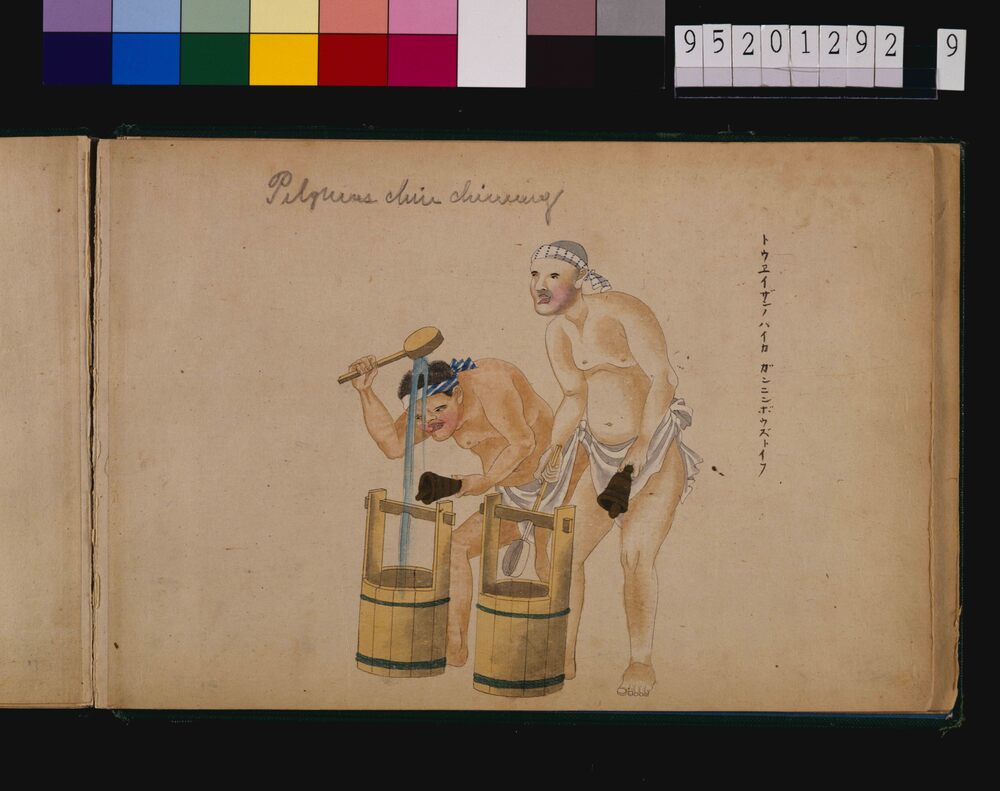 95201292 9
Pilgrims chin chinning
トウヱイザンノハイカ ガンニンボウズトイフ